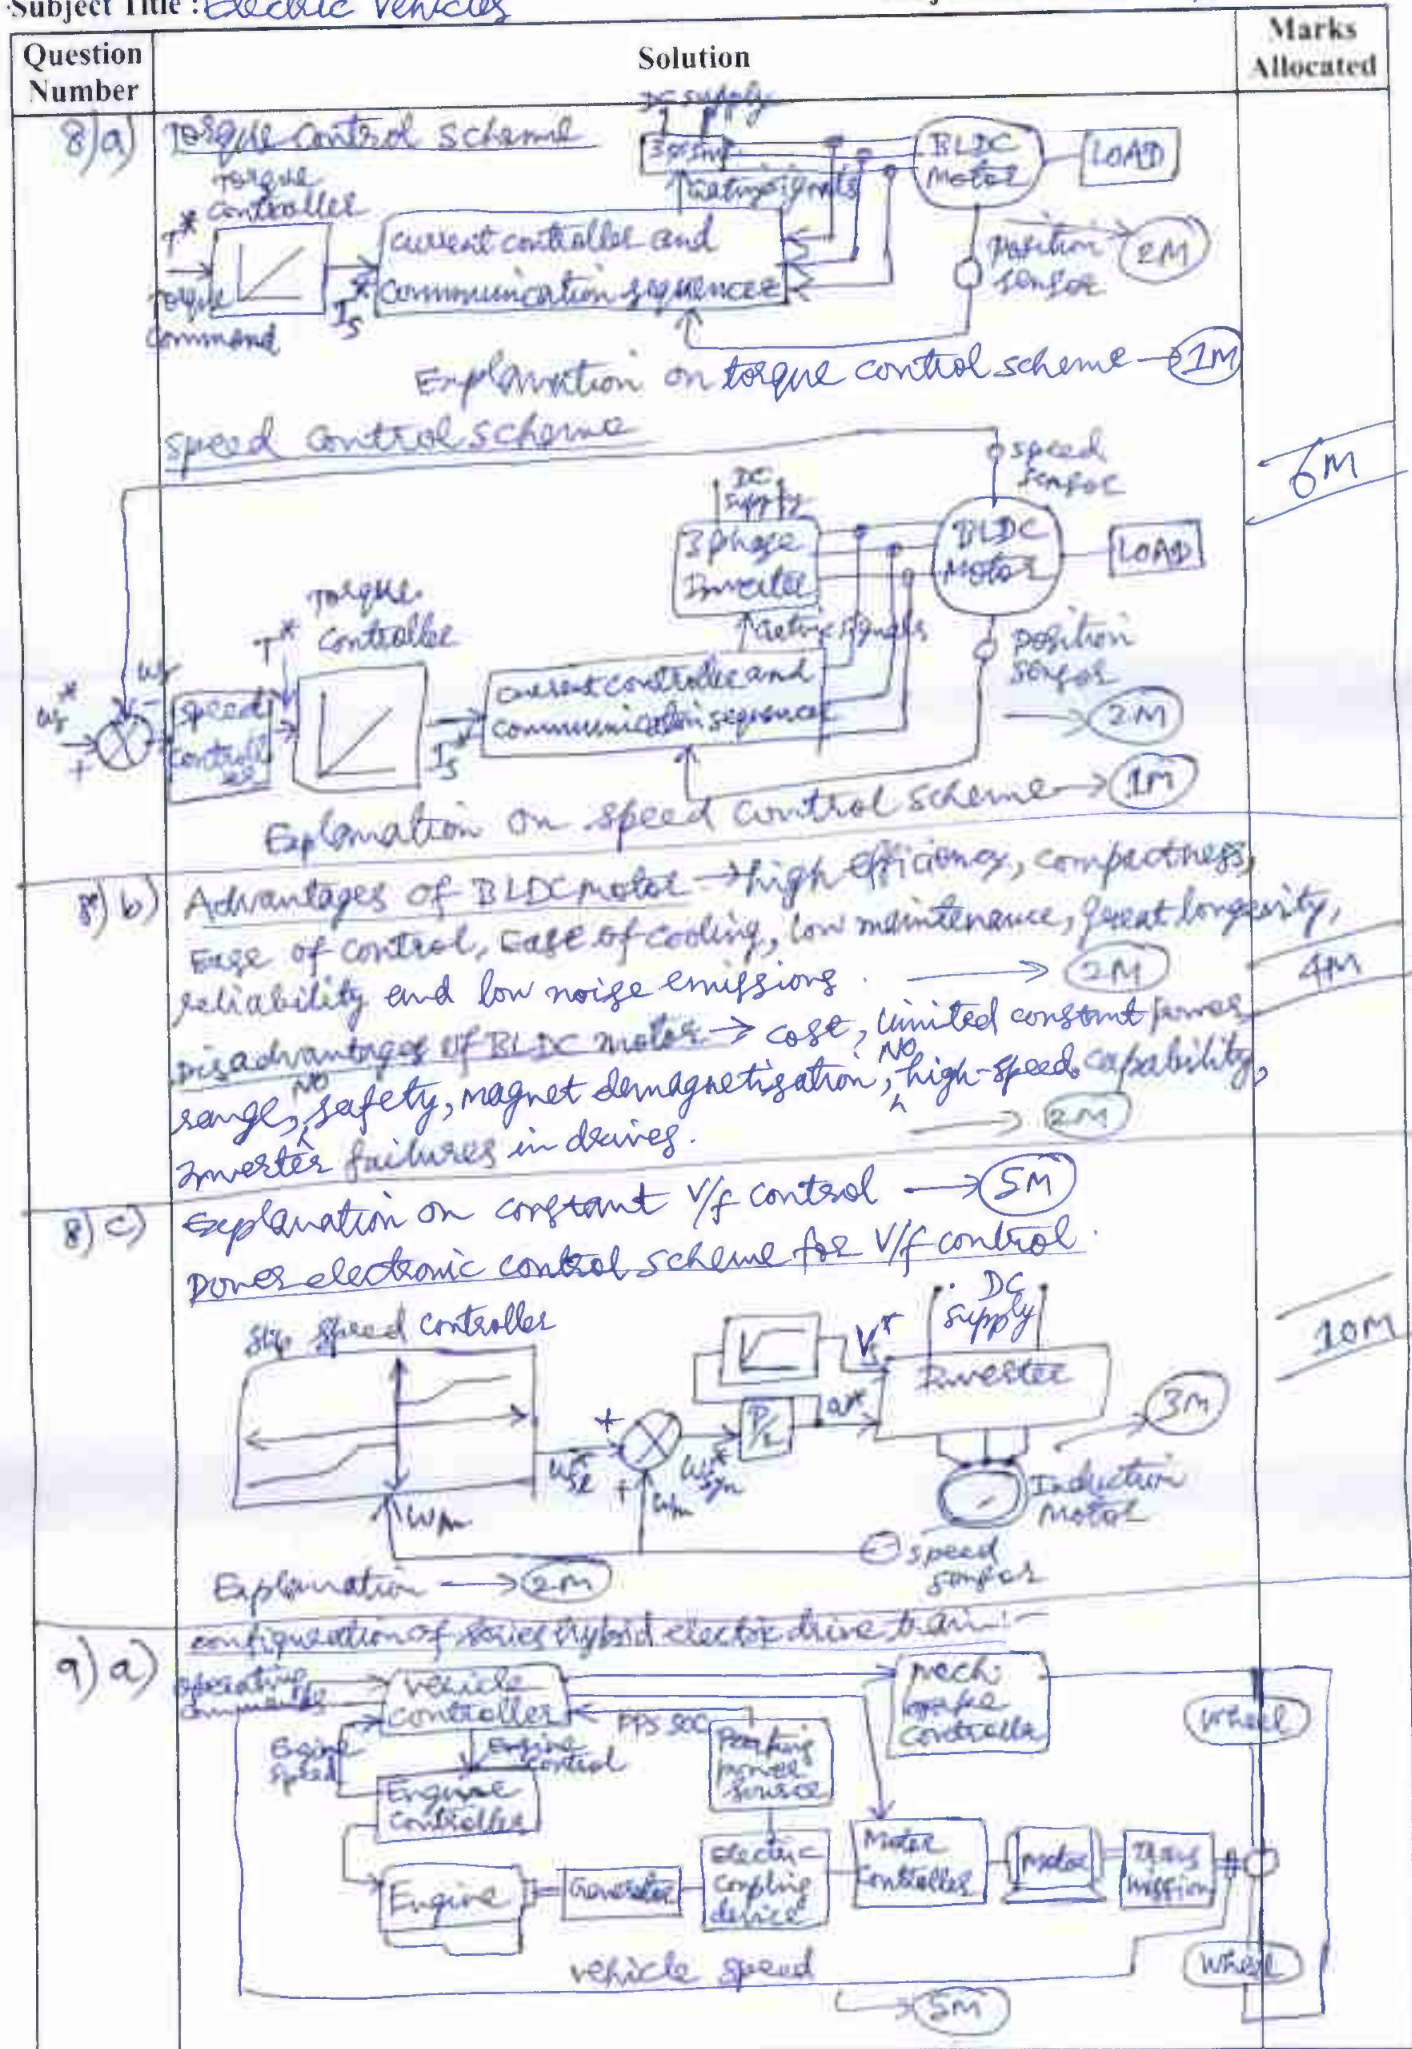 Subject Title : Electric Vehicles
Question Number
Solution
Marks Allocated
8)a)
Torque Control Scheme
DC supply
BLDC Motor
LOAD
Torque Controller
T*
Torque Command
I*s
current controller and
communication sequencer
position sensor
2M
Explanation on torque control scheme → 1M
6M
speed control scheme
speed sensor
DC supply
3 phase Inverter
BLDC Motor
LOAD
Torque Controller
T*
ωr*
ωr
+
-
speed controller
I*s
current controller and
communication sequencer
position sensor
2M
Explanation on speed control scheme → 1M
8) b)
Advantages of BLDC motor → high efficiency, compactness,
Ease of control, Ease of cooling, low maintenance, great longevity,
reliability and low noise emissions. → 2M
4M
Disadvantages of BLDC motor → cost, limited constant power
range, NO safety, magnet demagnetisation, NO high-speed capability,
Inverter failures in drives. → 2M
8) c)
Explanation on constant V/f control → 5M
Power electronic control scheme for V/f control.
10M
Slip speed controller
DC supply
V*
Inverter
P/2
+
+
ω*sl
ωm
ω*syn
ωm
3M
Induction Motor
speed sensor
Explanation → 2M
9) a)
configuration of series Hybrid electric drive train:-
operating commands
vehicle controller
Mech. brake controller
wheel
PPS SOC
Engine speed
Engine control
Peaking power source
Engine controller
Engine
Generator
Electric coupling device
Motor controller
Motor
Transmission
wheel
vehicle speed
5M